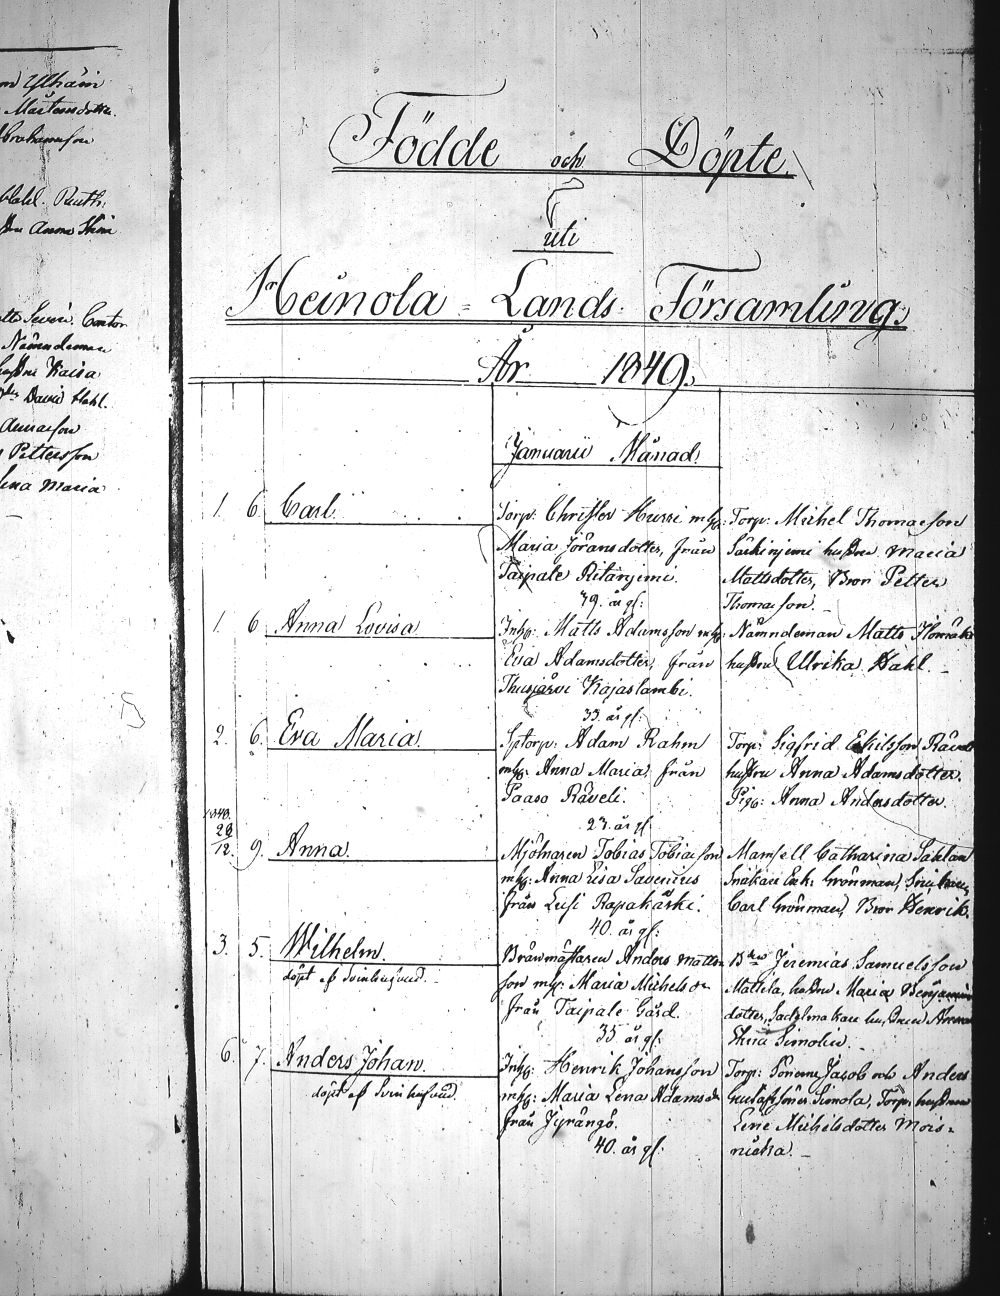 Mårtensdotter
Abrahamson
Dahl. Ruth.
Anna Stina
Cantor
Nämndeman
Kaisa
David Dahl.
Pettersson
Maria
Födde och Döpte
uti
Heinola Lands Församling.
År 1849.
Januarii Månad.
1. 6. Carl.
Torp: Christer Hurri m hu:
Maria Jöransdotter, från
Taipale Ritaniemi.
39. år gl:
Torp: Michel Thomasson
hustru Maria
Mattsdotter, Bror Petter
Thomasson.
1. 6. Anna Lovisa
Inhs: Matts Adamsson m hu:
Eva Adamsdotter, från
Thusjärvi Kajaslambi.
33. år gl:
Nämndeman Matts
hustru Ulrika Dahl.
2. 6. Eva Maria.
Sptorp: Adam Rahm
m hu: Anna Maria, från
Paaso Räveli.
23. år gl.
Torp: Sigfrid Eskilsson
hustru Anna Adamsdotter.
Pig: Anna Andersdotter
1848.
28
12. 9. Anna.
Mjölnaren Tobias Tobiasson
m hu: Anna Lisa Savenius
från Lusi Rapakoski.
40. år gl:
Mamsell Catharina
Snikare Erik Grönman,
Carl Grönman, Bror Henrik.
3. 5. Wilhelm.
döpt af Svinhufvud.
Bränmästaren Anders Matts-
son m hu: Maria Michelsdr
från Taipale Gård.
35 år gl.
Jeremias Samuelsson
Mattila, hustru Maria Benjamins
dotter, Sadelmakare hustrun Anna
Stina Simolin.
6. 7. Anders Johan.
döpt af Svinhufvud.
Inhs: Henrik Johansson
m hu: Maria Lena Adamsdr
från Jyrängö.
40. år gl:
Torp: Sönerne Jacob och Anders
Gustafssöner Simola, Torp: hustrun
Michelsdotter Mois-
nicka.